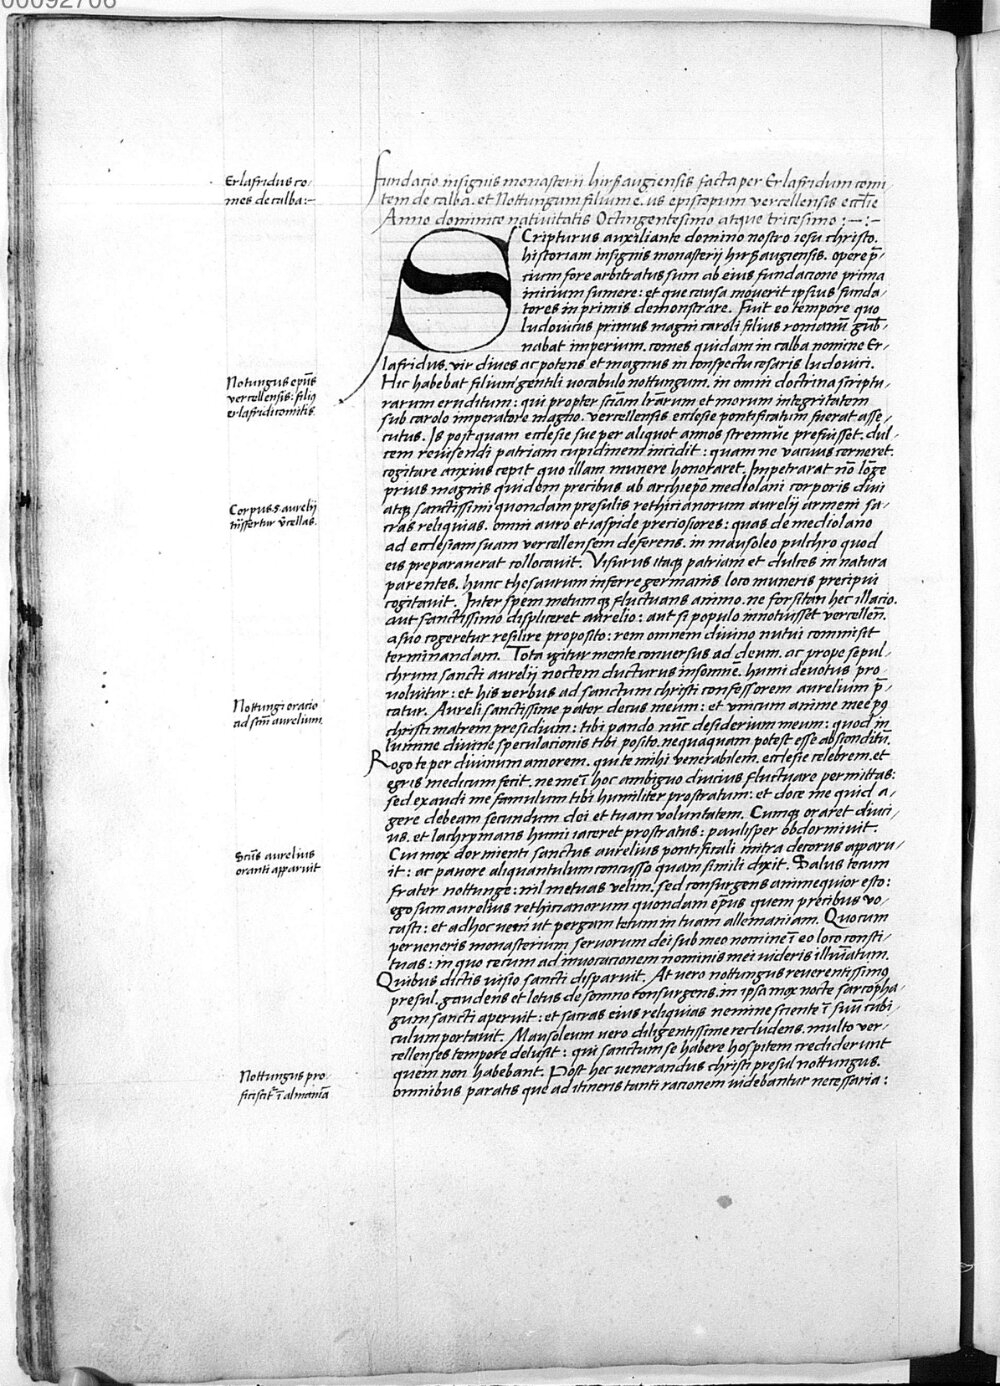 00092706
Fundatio insignis monasterii hirßaugiensis facta per Erlafridum comi
tem de calba. et Nottungum filium e.us episcopum vercellensis ecclīe
Anno dominice nativitatis Octingentesimo atque tricesimo :~:~
Erlafridus co-
mes de calba:~
SCripturus auxiliante domino nostro iesu christo.
historiam insignis monasterij hirßaugiensis. opere p̄-
cium fore arbitratus sum ab eius fundacione prima
inicium sumere: et que causa moverit ipsius funda-
tores in primis demonstrare. Fuit eo tempore quo
ludovicus primus magni caroli filius romanū gub̄-
nabat imperium. comes quidam in calba nomine Er-
lafridus. vir dives ac potens et magnus in conspectu cesaris ludovici.
Notungus ep̄us
vercellensis: filiꝯ
erlafridi comitis.
Hic habebat filium gentili vocabulo nottungum. in omni doctrina scriptu-
rarum eruditum: qui propter sciām lrārum et morum integritatem
sub carolo imperatore magno. vercellensis ecclesie pontificatum fuerat asse-
cutus. Is postquam ecclesie sue per aliquot annos strennue prefuisset. dul-
cem revisendi patriam cupidinem incidit: quam ne vacuus cerneret.
cogitare anxius cepit quo illam munere honoraret. Impetrarat nō lōge
prius magnis quidem precibus ab archiepō mediolani corporis divi
Corpus s aurelij
trāsfertur v̄cellas.
atqꝫ sanctissimi quondam presulis rethicianorum aurelij armeni sa-
cras reliquias. omni auro et iaspide preciosiores: quas de mediolano
ad ecclesiam suam vercellensem deferens. in mausoleo pulchro quod
eis preparaverat collocavit. Visurus itaqꝫ patriam et dulces in natura
parentes. hunc thesaurum inferre germanis loco muneris precipui
cogitavit. Inter spem metumqꝫ fluctuans animo. ne forsitan hec illacio.
aut sanctissimo displiceret aurelio: aut si populo innotuisset vercelleñ.
a suo cogeretur resilire proposito: rem omnem divino nutui commisit
terminandam. Tota igitur mente conversus ad deum. ac prope sepul-
chrum sancti aurelij noctem ducturus insomnē. humi devotus pro-
volvitur: et his verbus ad sanctum christi confessorem aurelium p̄-
Nottungi oracio
ad sctm̄ aurelium.
catur. Aureli sanctissime pater decus meum: et unicum anime mee pꝯ
christi matrem presidium: tibi pando nūc desiderium meum: quod in
lumine divine speculacionis tibi posito. nequaquam potest esse absconditū.
Rogo te per divinum amorem. qui te mihi venerabilem. ecclesie celebrem. et
egris medicum fecit. ne meī hoc ambiguo diucius fluctuare permittas:
sed exaudi me famulum tibi humiliter prostratum: et doce me quid a-
gere debeam secundum dei et tuam voluntatem. Cumqꝫ oraret diuci-
us. et lachrymans humi iaceret prostratus: paulisper obdormivit.
Sctūs aurelius
oranti apparuit
Cui mox dormienti sanctus aurelius pontificali mitra decorus apparu-
it: ac pavore aliquantulum concusso quam simili dixit. Salus tecum
frater nottunge: nil metuas velim. sed consurgens animequior esto:
ego sum aurelius rethicianorum quondam ep̄us quem precibus vo-
casti: et adhoc veni ut pergam tecum in tuam allemaniam. Quocum
perveneris monasterium servorum dei sub meo nomine ī eo loco consti-
tuas: in quo cecum ad invocacionem nominis mei videris illuīatum.
Quibus dictis visio sancti disparuit. At vero nottungus reverentissimꝯ
presul. gaudens et letus de somno consurgens. in ipsa mox nocte sarcopha-
gum sancti aperuit: et sacras eius reliquias nemine sciente ī suū cubi-
culum portavit. Mausoleum vero diligentissime recludens. multo ver-
cellenses tempore delusit: qui sanctum se habere hospitem crediderunt
Nottungus pro
ficiscit̄ ī almaniā
quem non habebant. Post hec venerandus christi presul nottungus.
omnibus paratis que ad itineris tanti racionem videbantur necessaria: